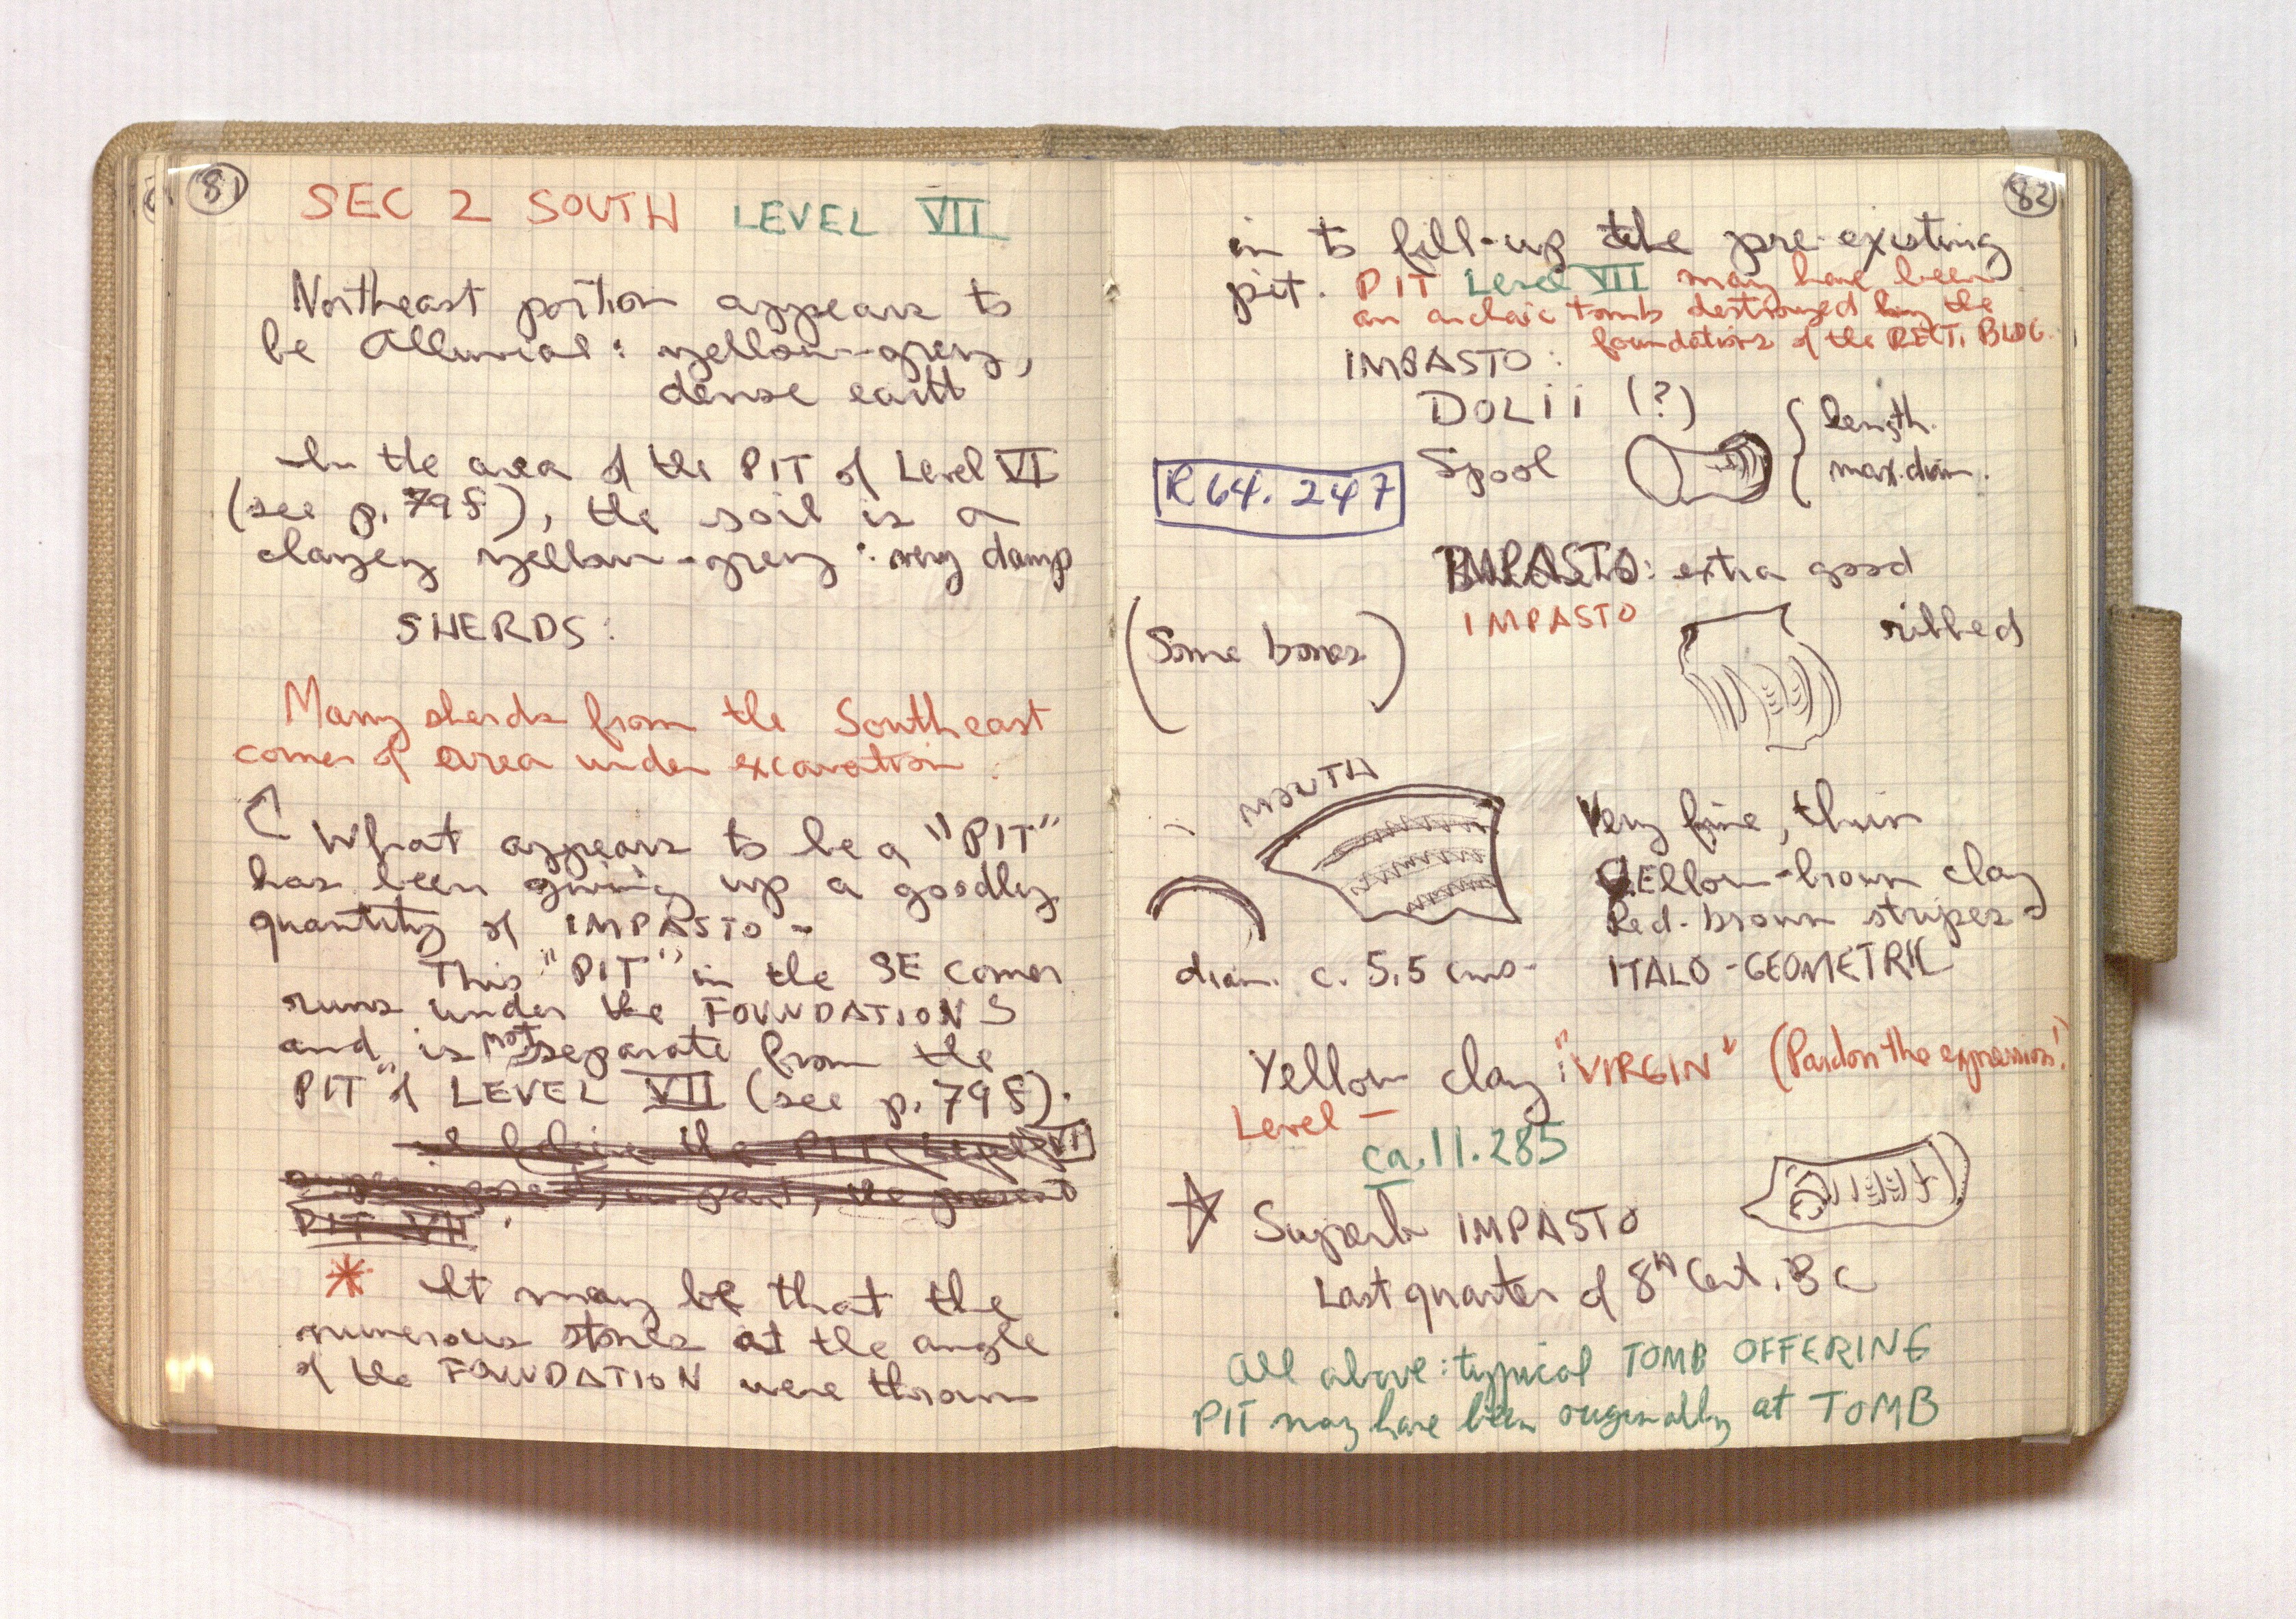 81
SEC 2 SOUTH LEVEL VII
Northeast portion appears to
be Alluvial: yellow-grey,
dense earth
In the area of the PIT of Level VI
(see p. 79 f), the soil is a
clayey yellow-grey: very damp
SHERDS:
Many sherds from the Southeast
corner of area under excavation.
What appears to be a "PIT"
has been giving up a goodly
quantity of IMPASTO -
This "PIT" in the SE corner
runs under the FOUNDATIONS
and is not separate from the
"PIT" of LEVEL VII (see p. 79 f).
I believe the PIT (Level VI
in part, the present
PIT VII.
* It may be that the
numerous stones at the angle
of the FOUNDATION were thrown
82
in to fill-up the pre-existing
pit. PIT Level VII may have been
an archaic tomb destroyed by the
foundations of the RECT. BLDG.
IMPASTO:
DOLII (?)
R 64. 247 Spool length.
max. diam.
IMPASTO: extra good
IMPASTO
(Some bones) ribbed
MOUTH
Very fine, thin
Yellow-brown clay
Red-brown stripes
diam. c. 5.5 cms - ITALO-GEOMETRIC
Yellow clay: "VIRGIN" (Pardon the expression!)
Level —
ca. 11.285
Superb IMPASTO
Last quarter of 8th Cent. BC
All above: typical TOMB OFFERING
PIT may have been originally at TOMB